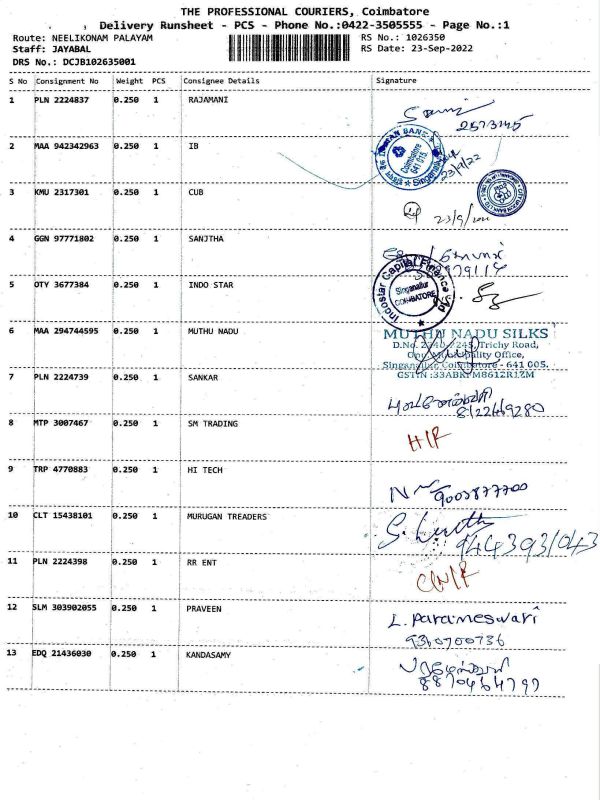 THE PROFESSIONAL COURIERS, Coimbatore
Delivery Runsheet - PCS - Phone No.:0422-3505555 - Page No.:1
Route: NEELIKONAM PALAYAM RS No.: 1026350
Staff: JAYABAL RS Date: 23-Sep-2022
DRS No.: DCJB102635001
S No Consignment No Weight PCS Consignee Details Signature
1 PLN 2224837 0.250 1 RAJAMANI
2573145
2 MAA 942342963 0.250 1 IB
INDIAN BANK
Coimbatore
641 015
Singanallur
23/9/22
3 KMU 2317301 0.250 1 CUB
23/9/2022
4 GGN 97771802 0.250 1 SANJTHA
5 OTY 3677384 0.250 1 INDO STAR
Indostar Capital Finance Ltd
Singanallur
COIMBATORE
6 MAA 294744595 0.250 1 MUTHU NADU
MUTHU NADU SILKS
D.No. Trichy Road,
Opp. Municipality Office,
Singanallur, Coimbatore - 641 005.
GSTIN :33ABKPM8612R1ZM
7 PLN 2224739 0.250 1 SANKAR
8122419280
8 MTP 3007467 0.250 1 SM TRADING
H/R
9 TRP 4770883 0.250 1 HI TECH
9003877700
10 CLT 15438101 0.250 1 MURUGAN TREADERS
9443931043
11 PLN 2224398 0.250 1 RR ENT
12 SLM 303902055 0.250 1 PRAVEEN
L. Parameswari
9360700736
13 EDQ 21436030 0.250 1 KANDASAMY
8870464797